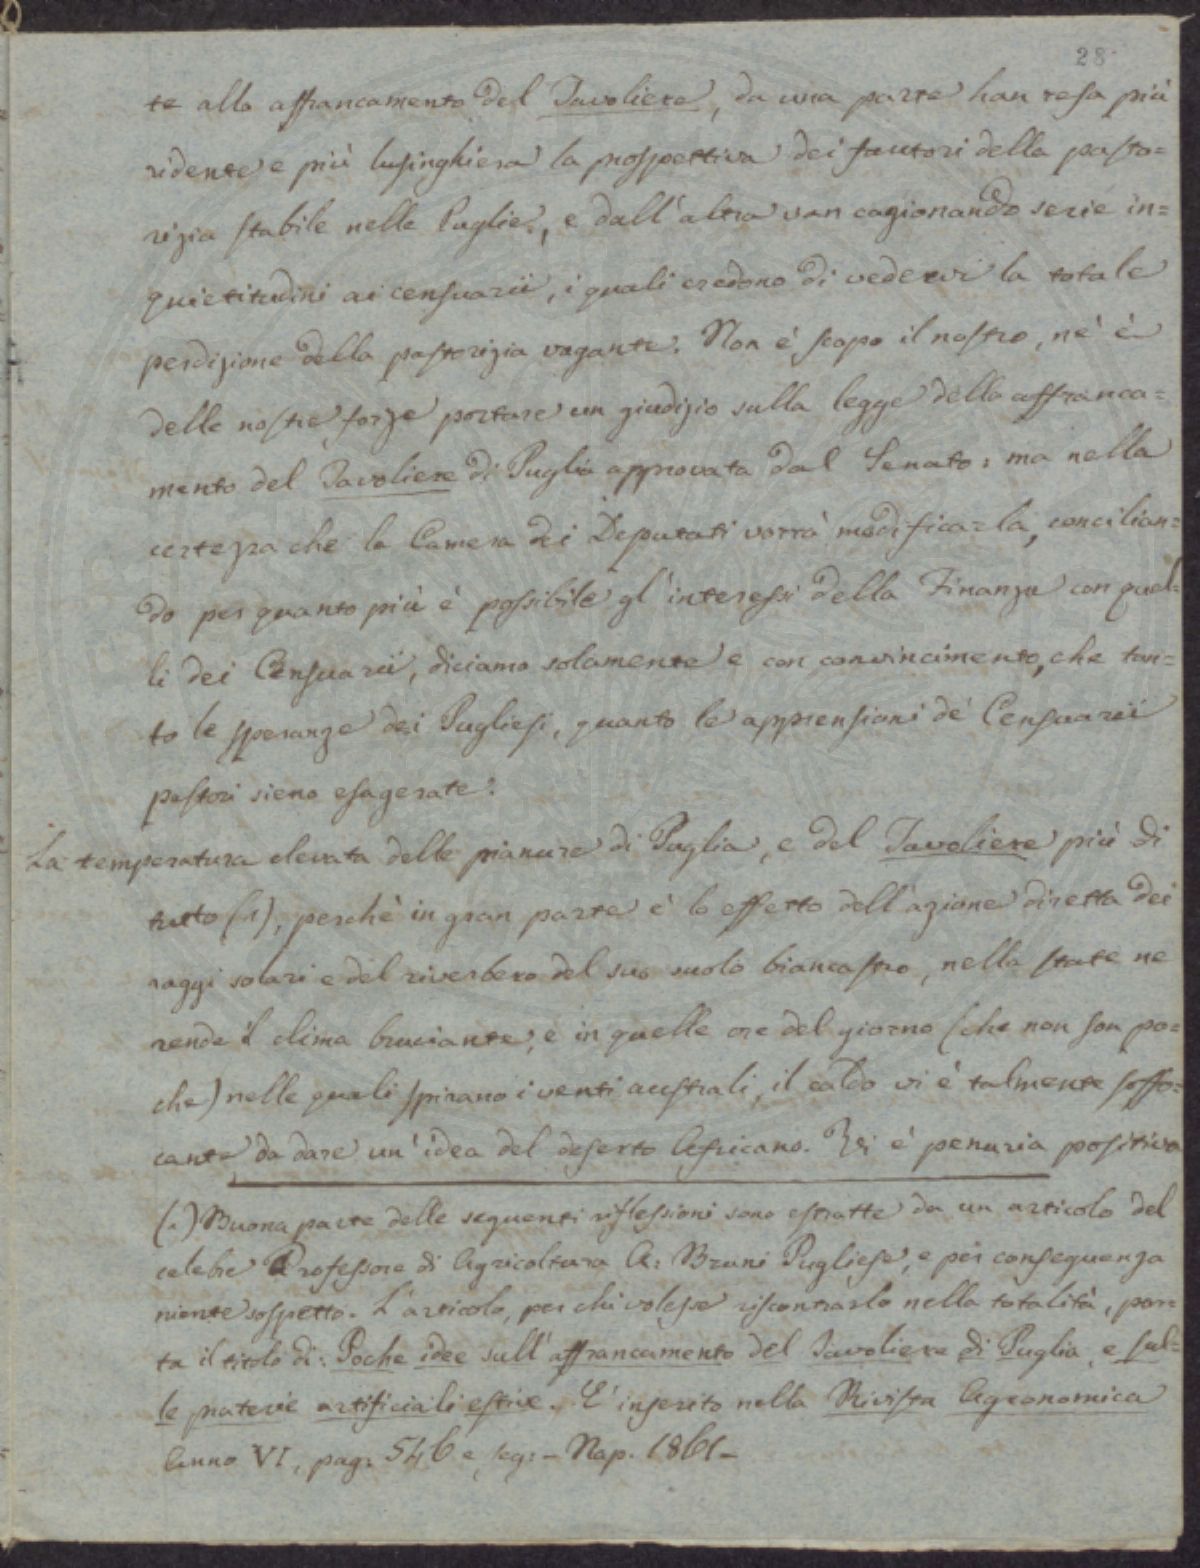 28
te allo affrancamento del Tavoliere, da una parte han resa più
ridente e più lusinghiera la prospettiva dei fautori della pasto=
rizia stabile nelle Puglie, e dall'altra van cagionando serie in=
quietitudini ai censuarii, i quali credono di vedervi la totale
perdizione della pastorizia vagante. Non è scopo il nostro, nè è
delle nostre forze portare un giudizio sulla legge dello affranca=
mento del Tavoliere di Puglia approvata dal Senato: ma nella
certezza che la Camera dei Deputati vorrà modificarla, concilian=
do per quanto più è possibile gl'interessi della Finanza con quel=
li dei Censuarii, diciamo solamente e con convincimento, che tan=
to le speranze dei Pugliesi, quanto le apprensioni de' Censuarii
pastori sieno esagerate.
La temperatura elevata delle pianure di Puglia, e del Tavoliere più di
tutto (1), perchè in gran parte è lo effetto dell'azione diretta dei
raggi solari e del riverbero del suo suolo biancastro, nella state ne
rende il clima bruciante, e in quelle ore del giorno (che non son po=
che) nelle quali spirano i venti australi, il caldo vi è talmente soffo=
cante da dare un'idea del deserto Africano. Vi è penuria positiva
(1) Buona parte delle seguenti riflessioni sono estratte da un articolo del
celebre Professore di Agricoltura A. Bruni Pugliese, e per conseguenza
niente sospetto. L'articolo, per chi volesse riscontrarlo nella totalità, por=
ta il titolo di: Poche idee sull'affrancamento del Tavoliere di Puglia, e sul=
le praterie artificiali estive. È inserito nella Rivista Agronomica
Anno VI, pag. 546 e seg. - Nap. 1861 -